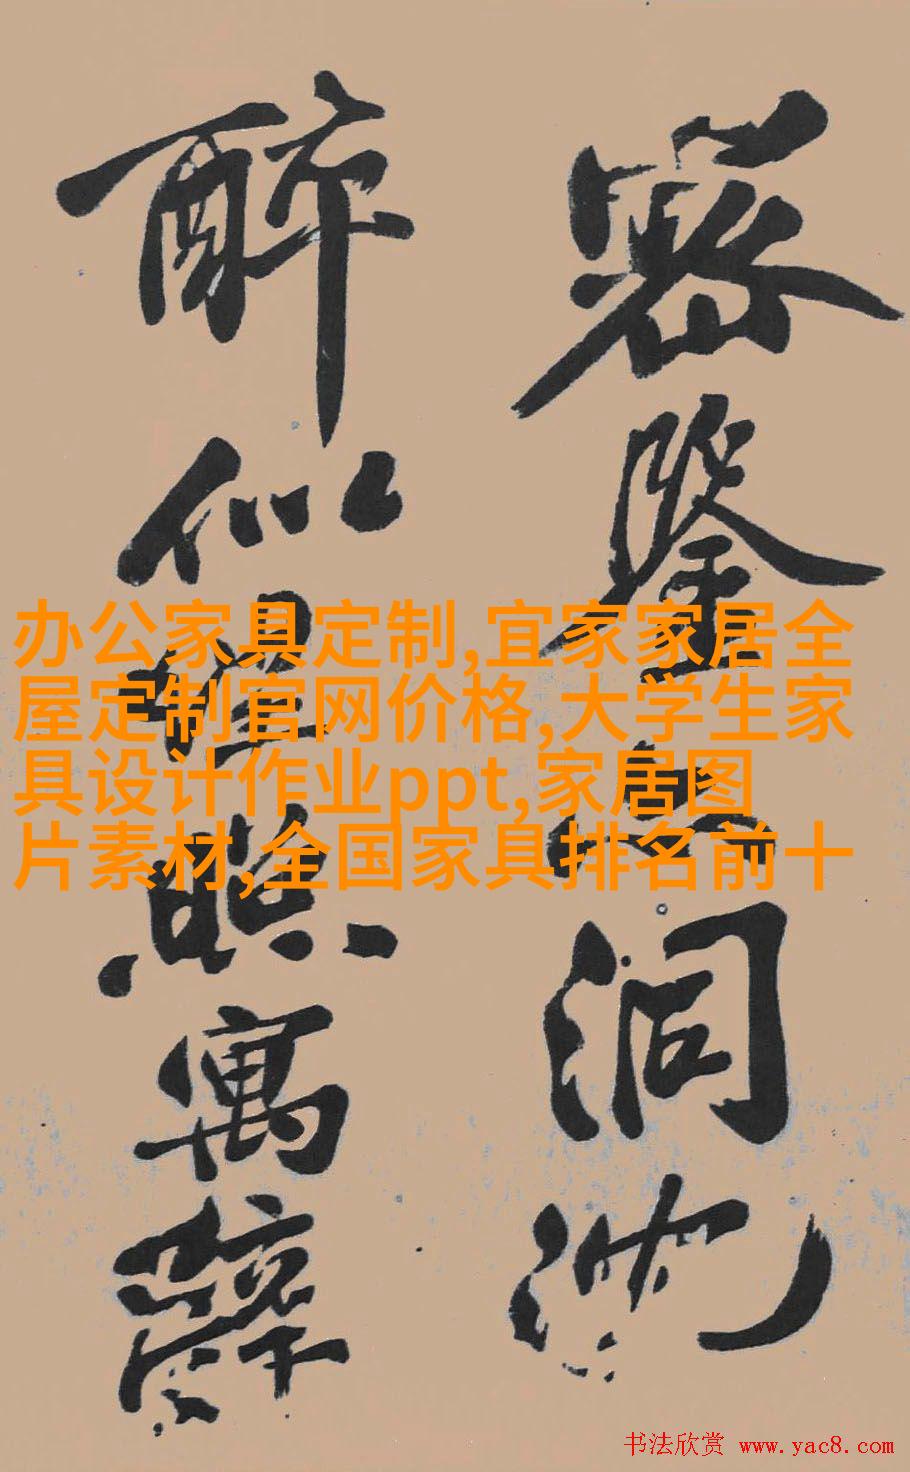 密鉴洞沈
醉似埋照寓辞
办公家具定制,宜家家居全
屋定制官网价格,大学生家
具设计作业ppt,家居图
片素材,全国家具排名前十
书法欣赏 www.yac8.com